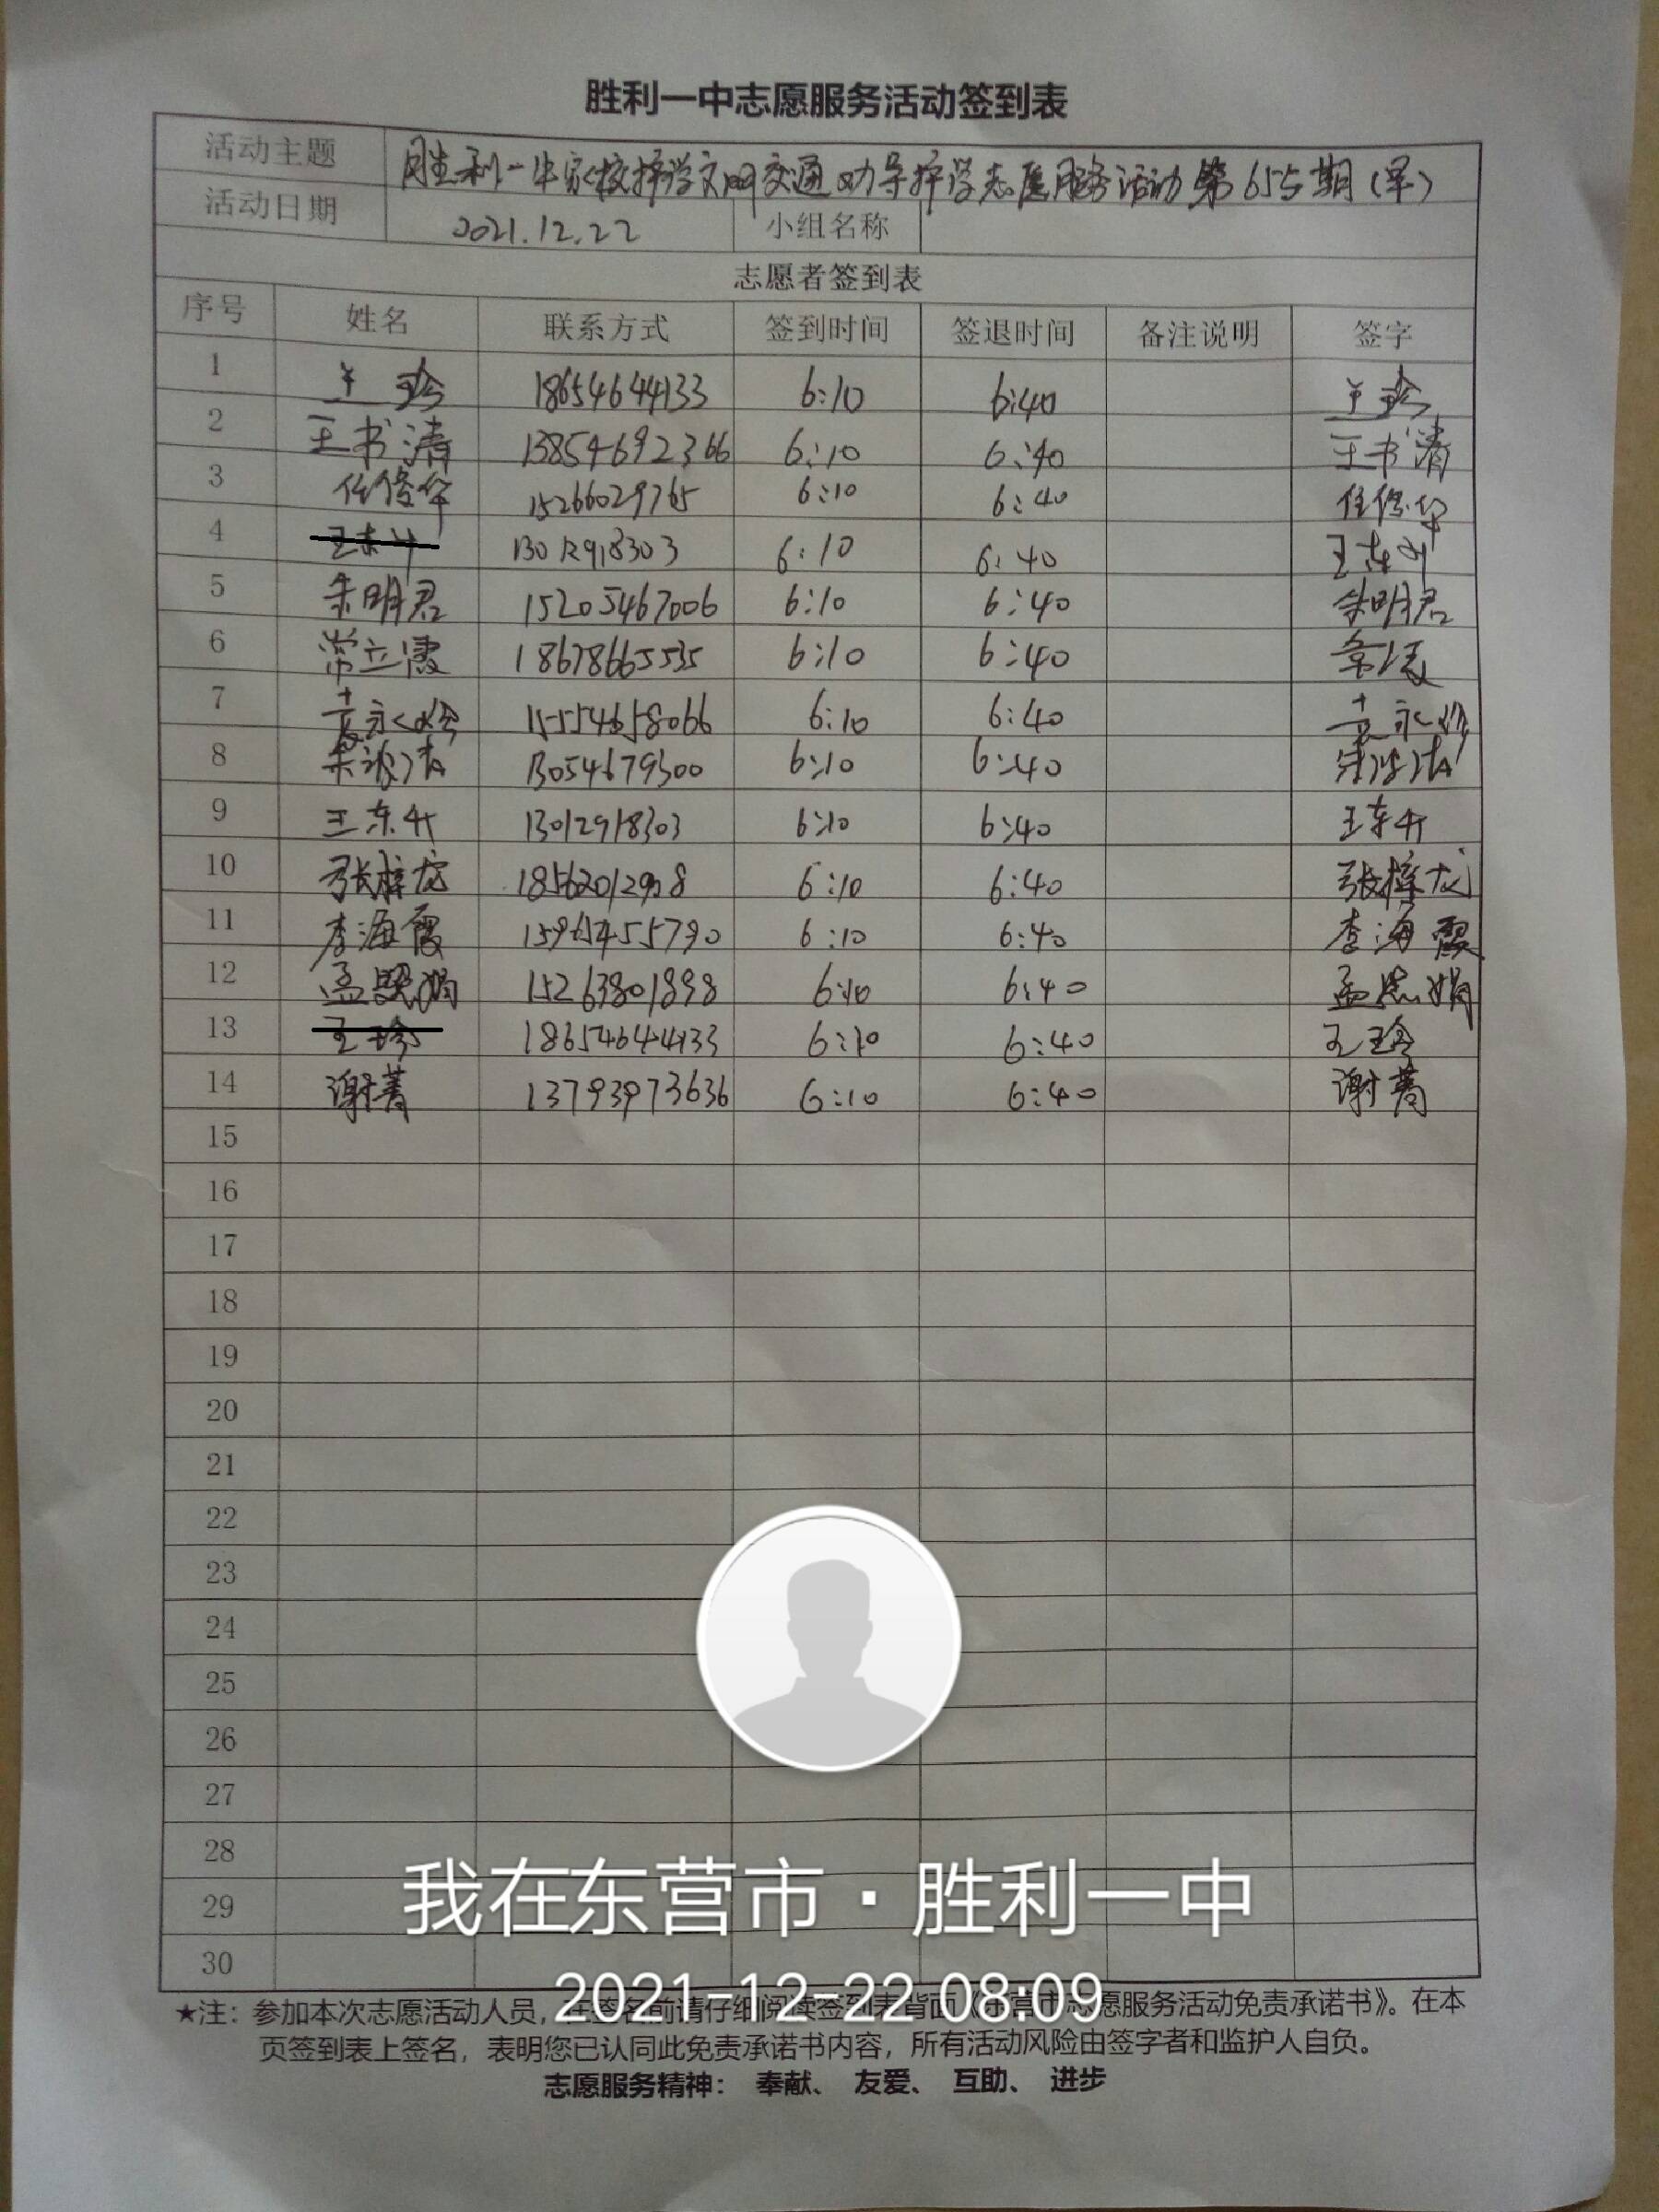 胜利一中志愿服务活动签到表
活动主题 胜利一中家校护学文明交通劝导护学志愿服务活动第655期(早)
活动日期 2021.12.22 小组名称
志愿者签到表
序号 姓名 联系方式 签到时间 签退时间 备注说明 签字
1 18654644133 6:10 6:40
2 王书清 13854692366 6:10 6:40 王书清
3 15266029765 6:10 6:40
4 13012918303 6:10 6:40
5 朱明君 15205467006 6:10 6:40 朱明君
6 常立霞 18678665535 6:10 6:40
7 袁永 15554658066 6:10 6:40 袁永
8 13054679300 6:10 6:40
9 王东升 13012918303 6:10 6:40 王东升
10 张梓龙 6:10 6:40 张梓龙
11 李海霞 6:10 6:40 李海霞
12 孟 15263801898 6:10 6:40 孟
13 王玲 18654644133 6:10 6:40 王玲
14 谢菁 13793973636 6:10 6:40 谢菁
15
16
17
18
19
20
21
22
23
24
25
26
27
28
29
30
我在东营市·胜利一中
2021-12-22 08:09
★注：参加本次志愿活动人员，在签名前请仔细阅读签到表背面《东营市志愿服务活动免责承诺书》。在本
页签到表上签名，表明您已认同此免责承诺书内容，所有活动风险由签字者和监护人自负。
志愿服务精神： 奉献、 友爱、 互助、 进步